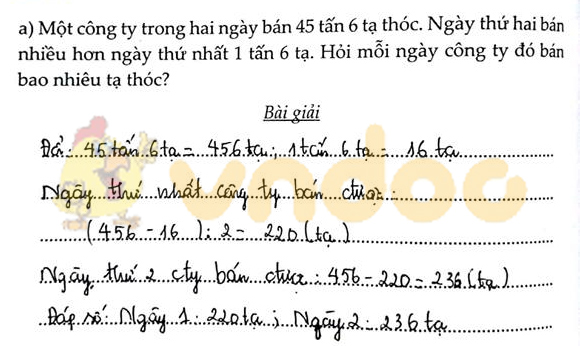 a) Một công ty trong hai ngày bán 45 tấn 6 tạ thóc. Ngày thứ hai bán
nhiều hơn ngày thứ nhất 1 tấn 6 tạ. Hỏi mỗi ngày công ty đó bán
bao nhiêu tạ thóc?
Bài giải
Đổi: 45 tấn 6 tạ = 456 tạ; 1 tấn 6 tạ = 16 tạ
Ngày thứ nhất công ty bán được:
(456 - 16) : 2 = 220 (tạ)
Ngày thứ 2 cty bán được: 456 - 220 = 236 (tạ)
Đáp số: Ngày 1: 220 tạ; Ngày 2: 236 tạ
vndoc